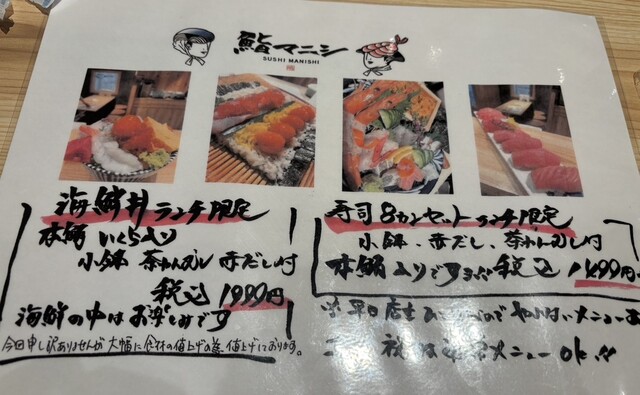 鮨マニシ
SUSHI MANISHI
海鮮丼 ランチ限定
本鮪 いくら入り
小鉢 茶わんむし 赤だし付
税込 1999円
海鮮の中はお楽しみです
今回申し訳ありませんが大幅に食材の値上げの為、値上げしております。
寿司8カンセット ランチ限定
小鉢、赤だし、茶わんむし付
本鮪入りです 税込 1499円
※平日
メニュー
祝は メニュー OK!!